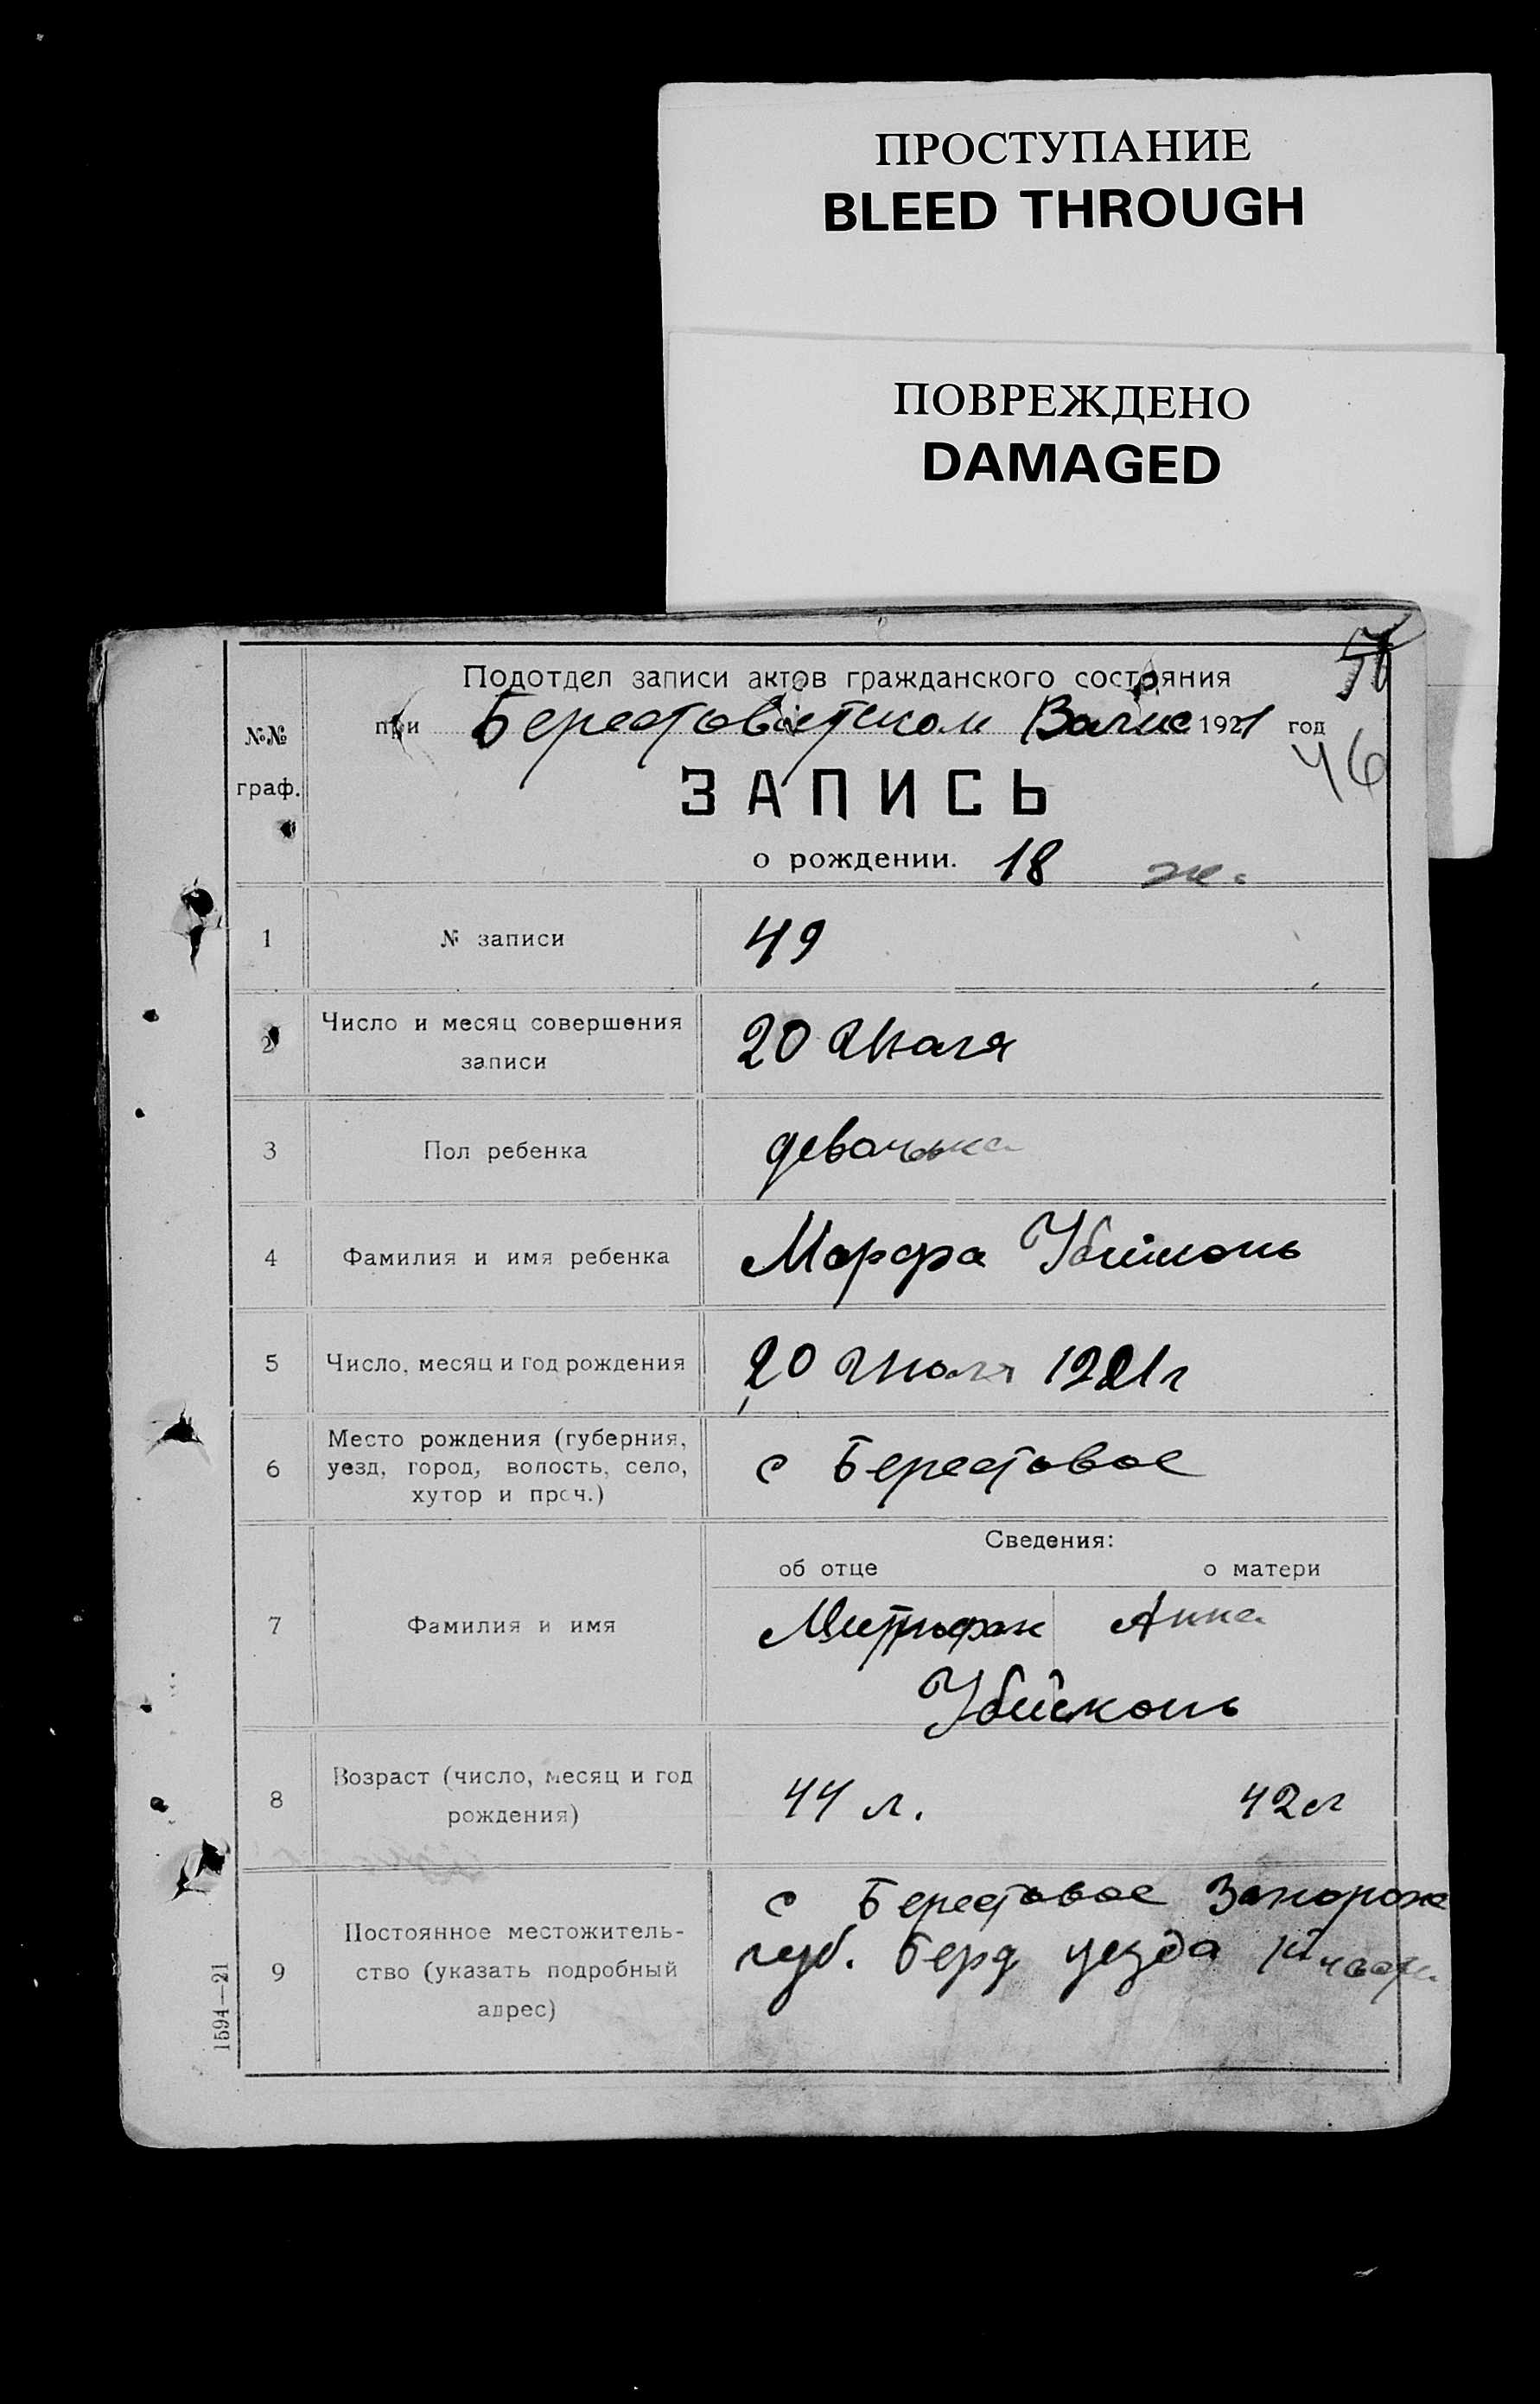 ПРОСТУПАНИЕ
BLEED THROUGH
ПОВРЕЖДЕНО
DAMAGED
Подотдел записи актов гражданского состояния
при Берестоветском 1921 год
46
№№ граф.
ЗАПИСЬ
о рождении. 18 ж.
1 № записи 49
2 Число и месяц совершения
записи
20 Июля
3 Пол ребенка девочька
4 Фамилия и имя ребенка Марфа Убийконь
5 Число, месяц и год рождения 20 Июля 1921 г
6 Место рождения (губерния,
уезд, город, волость, село,
хутор и проч.)
с Берестовое
Сведения:
об отце о матери
7 Фамилия и имя Митрофан Анна
Убийконь
8 Возраст (число, месяц и год
рождения)
44 л. 42 л
9 Постоянное местожитель-
ство (указать подробный
адрес)
с Берестовое Запорож
губ. Берд уезда
1594—21